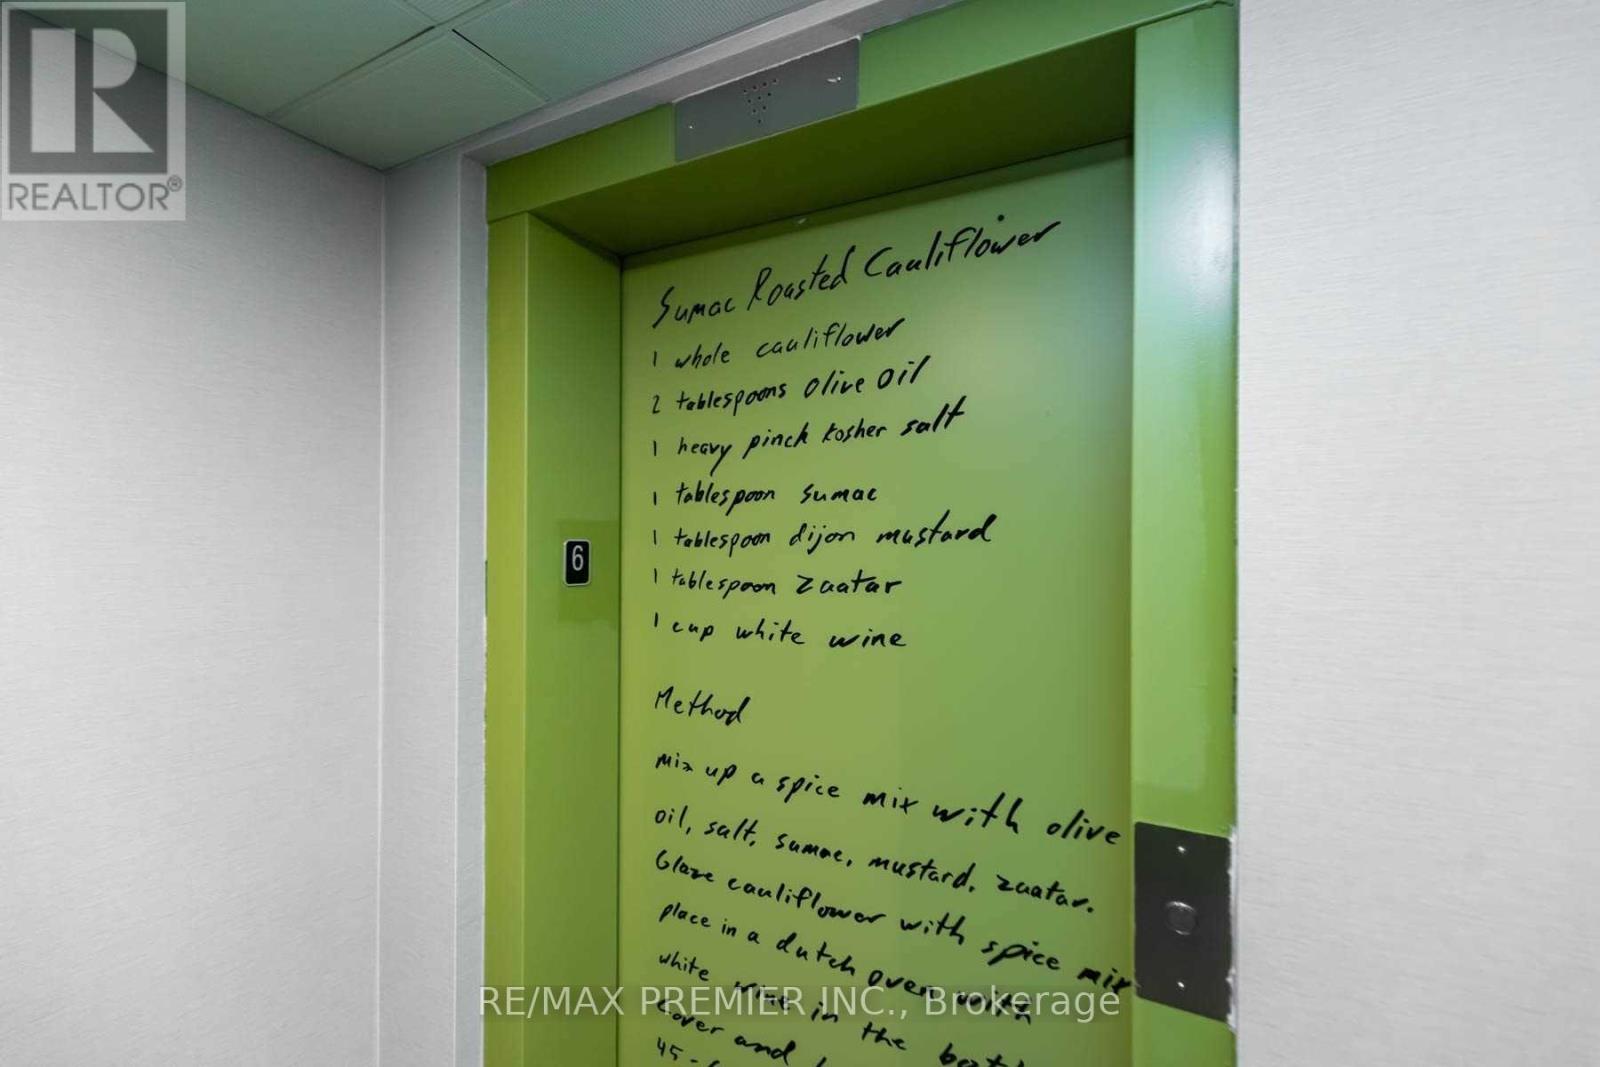 REALTOR®
Sumac Roasted Cauliflower
1 whole cauliflower
2 tablespoons olive oil
1 heavy pinch kosher salt
1 tablespoon sumac
1 tablespoon dijon mustard
6
1 tablespoon zaatar
1 cup white wine
Method
Mix up a spice mix with olive
oil, salt, sumac, mustard, zaatar.
Glaze cauliflower with spice mix
place in a dutch oven with
white wine in the
RE/MAX PREMIER INC., Brokerage
Cover and
45-